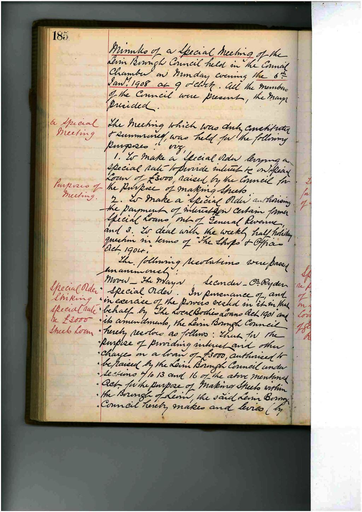 185
Minutes of a Special Meeting of the
Levin Borough Council held in the Council
Chamber on Monday evening the 6th
Jany. 1908 at 9 o'clock. All the members
of the Council were present, the Mayor
presided.
a Special
Meeting
The Meeting which was duly constituted
& summoned, was held for the following
purposes: viz,
1. To make a Special Order levying a
special rate to provide interest on Special
Loan of £3000, raised by the Council for
the purpose of making Streets.
Purposes of
Meeting.
2. To make a Special Order authorising
the payment of interest on certain
Special Loans out of General Revenue
and 3. To deal with the weekly half holiday
question in terms of "The Shops & Offices
Act 1904.
The following resolutions were passed
unanimously:
Moved - The Mayor Seconder - Cr Ryder
Special Order
striking
special rate
£3000
Streets Loan
Special Order. In pursuance of and
in exercise of the powers vested in it in that
behalf by The Local Bodies Loans Act, 1901 and
its amendments, the Levin Borough Council
hereby resolves as follows: That for the
purpose of providing interest and other
charges on a loan of £3000, authorised to
be raised by the Levin Borough Council under
sections 13 and 16 of the above mentioned
Act for the purpose of making Streets within
the Borough of Levin, the said Levin Borough
Council hereby makes and levies by